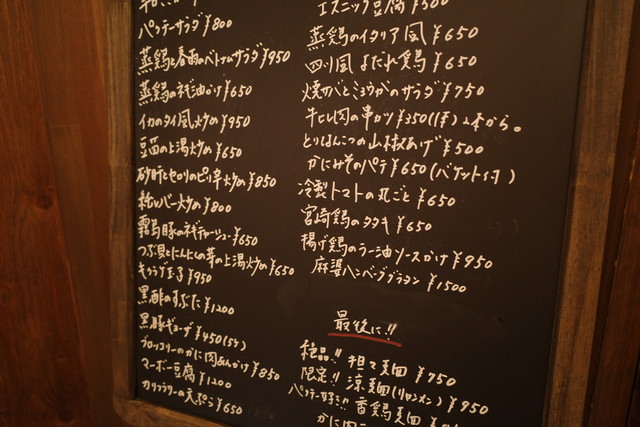 パクチーサラダ ¥800
蒸鶏と春雨のベトナムサラダ ¥950
蒸鶏のネギ油かけ ¥650
イカのタイ風炒め ¥950
豆苗の上湯炒め ¥650
砂肝とセロリのピリ辛炒め ¥850
¥800
霧島豚のネギチャーシュー ¥650
つぶ貝とにんにくの芽の上湯炒め ¥650
キクラゲ玉子 ¥950
黒酢のすぶた ¥1200
黒豚ギョーザ ¥450(5ケ)
ブロッコリーのかに肉あんかけ ¥850
マーボー豆腐 ¥1200
カリフラワーの天ぷら ¥650
エスニック豆腐 ¥500
蒸鶏のイタリア風 ¥650
四川風 よだれ鶏 ¥650
焼サバとミョウガのサラダ ¥750
牛ヒレ肉の串カツ ¥350(1本) 2本から。
とりはんこつの山椒あげ ¥500
かにみそのパテ ¥650(バケット付)
冷製トマトの丸ごと ¥650
宮崎鶏のタタキ ¥650
揚げ鶏のラー油ソースかけ ¥950
麻婆ハンバーググラタン ¥1500
最後に!!
絶品!! 担々麺 ¥750
限定!! 涼麺(リャンメン) ¥950
パクチー好き!! 香鶏麺
かに肉